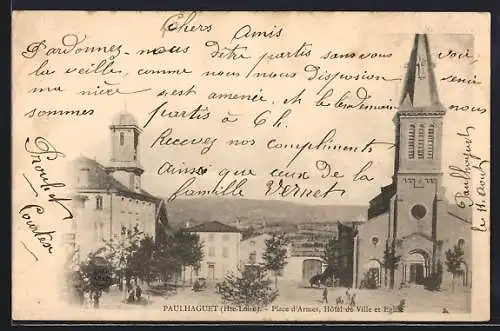 Chers Amis
Pardonnez-nous d'être partis sans vous voir,
la veille, comme nous nous disposition venir
ma nièce s'est amenée, et le lendemain nous
sommes partis à 6 h.
Recevez nos compliments
Ainsi que ceux de la
famille Vernet
Paulhaguet
le
Août
PAULHAGUET (Hte-Loire). - Place d'Armes, Hôtel de Ville et Eglise